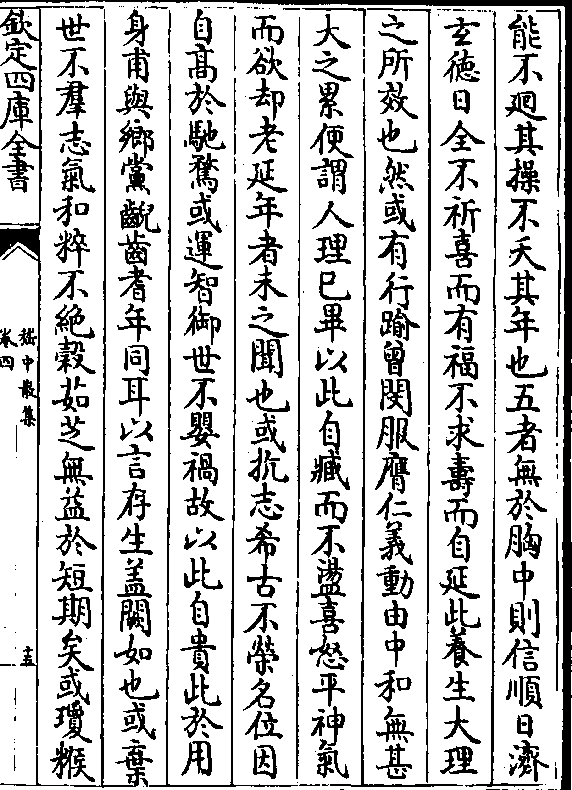 能不迴其操不夭其年也五者無於胸中則信順日濟
玄徳日全不祈喜而有福不求壽而自延此養生大理
之所效也然或有行踰曾閔服膺仁義動由中和無甚
大之累便謂人理已畢以此自臧而不盪喜怒平神氣
而欲却老延年者未之聞也或抗志希古不榮名位因
自髙於馳騖或運智御世不嬰禍故以此自貴此於用
身甫與鄉黨齯齒耆年同耳以言存生盖闕如也或棄
世不羣志氣和粹不絶穀茹芝無益於短期矣或瓊糇
欽定四庫全書
嵇中散集
卷四
十五